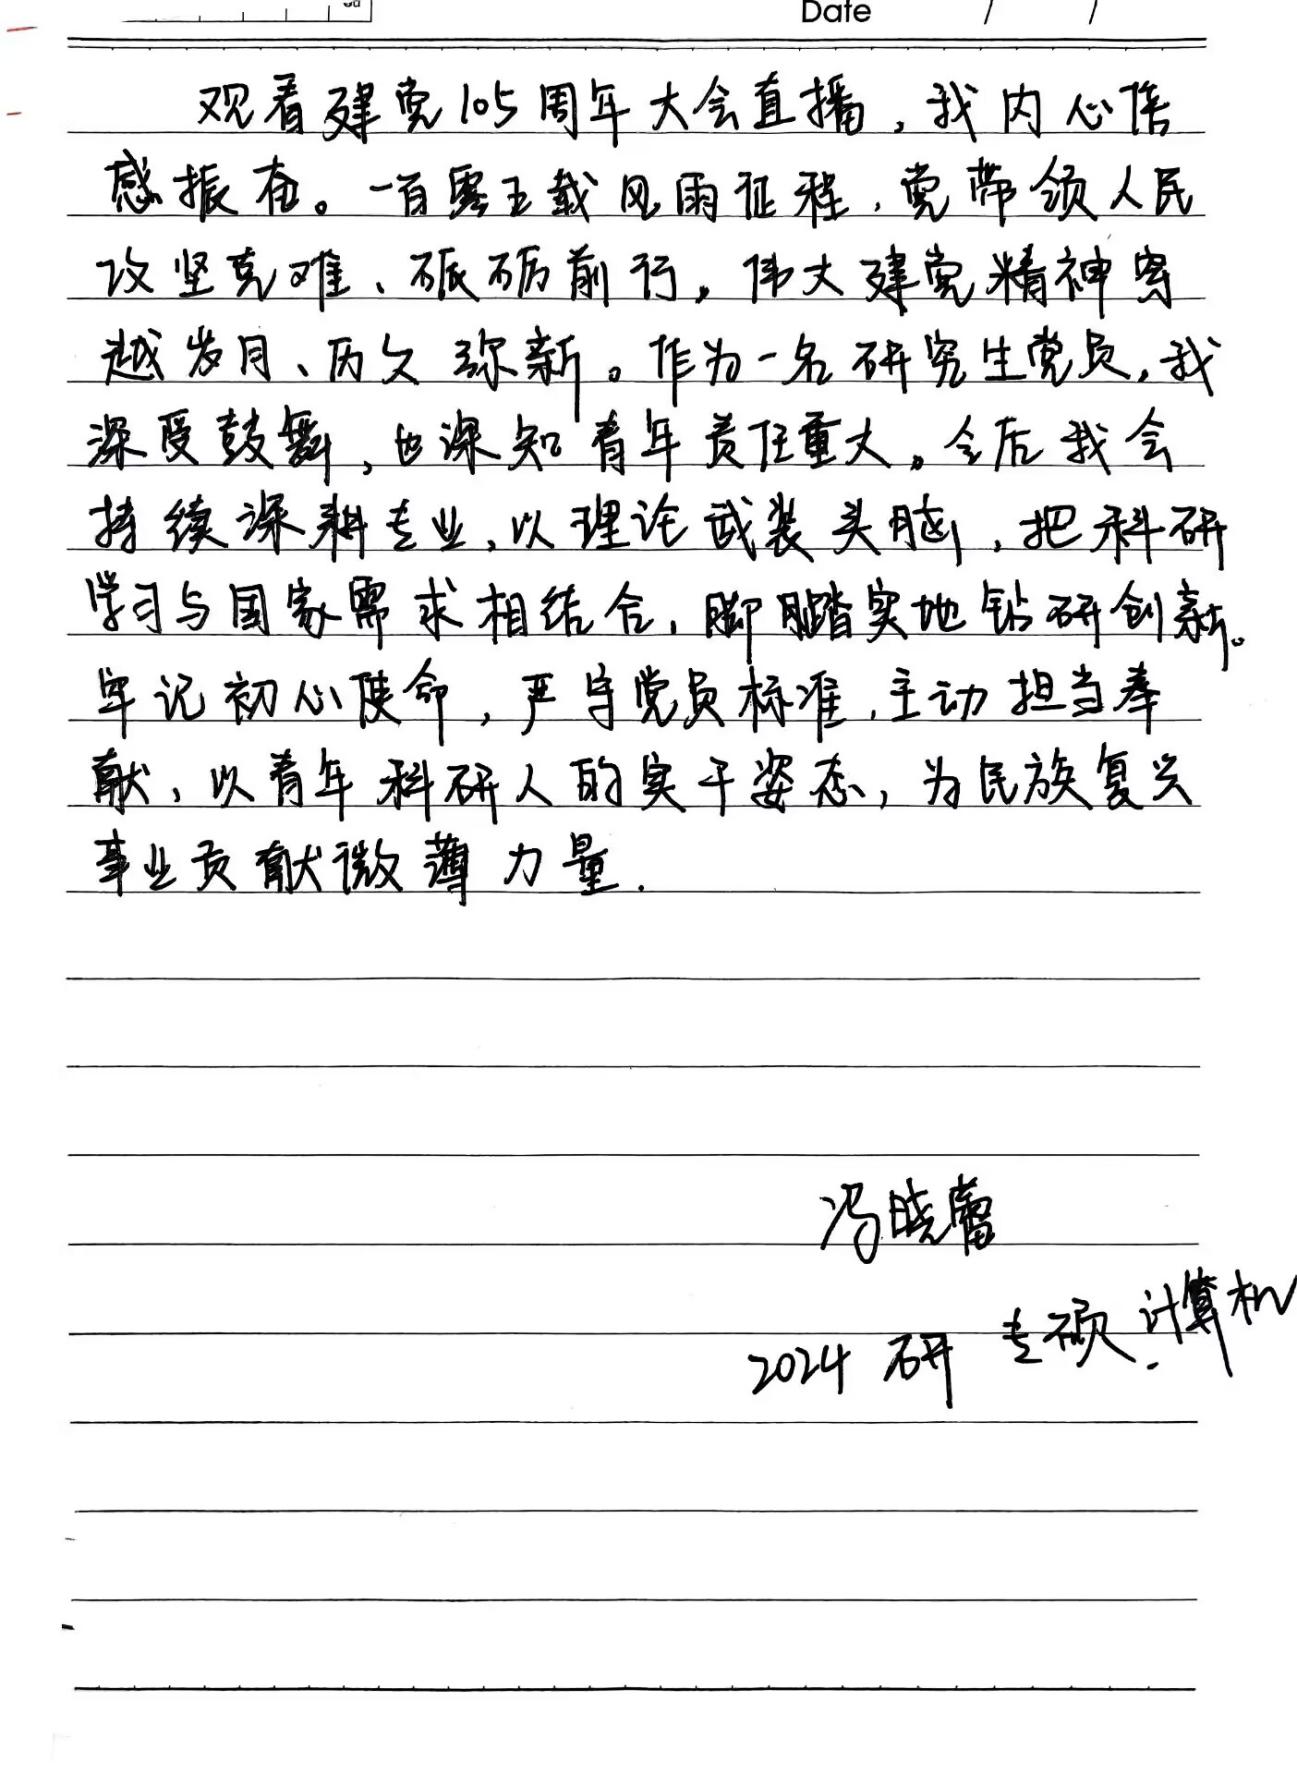 Date / /
观看建党105周年大会直播，我内心倍
感振奋。一百零五载风雨征程，党带领人民
攻坚克难、砥砺前行，伟大建党精神穿
越岁月、历久弥新。作为一名研究生党员，我
深受鼓舞，也深知青年责任重大。今后我会
持续深耕专业，以理论武装头脑，把科研
学习与国家需求相结合，脚踏实地钻研创新。
牢记初心使命，严守党员标准，主动担当奉
献，以青年科研人的实干姿态，为民族复兴
事业贡献微薄力量.
冯晓蕾
2024 研 专硕.计算机